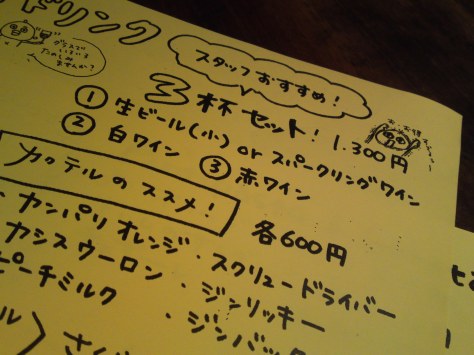 ドリンク
スタッフおすすめ!
3杯セット! 1,300円
① 生ビール(小) or スパークリングワイン
② 白ワイン ③ 赤ワイン
カクテルのススメ! 各600円
カンパリオレンジ ・スクリュードライバー
カシスウーロン ・ジンリッキー
ピーチミルク ・ジンバック